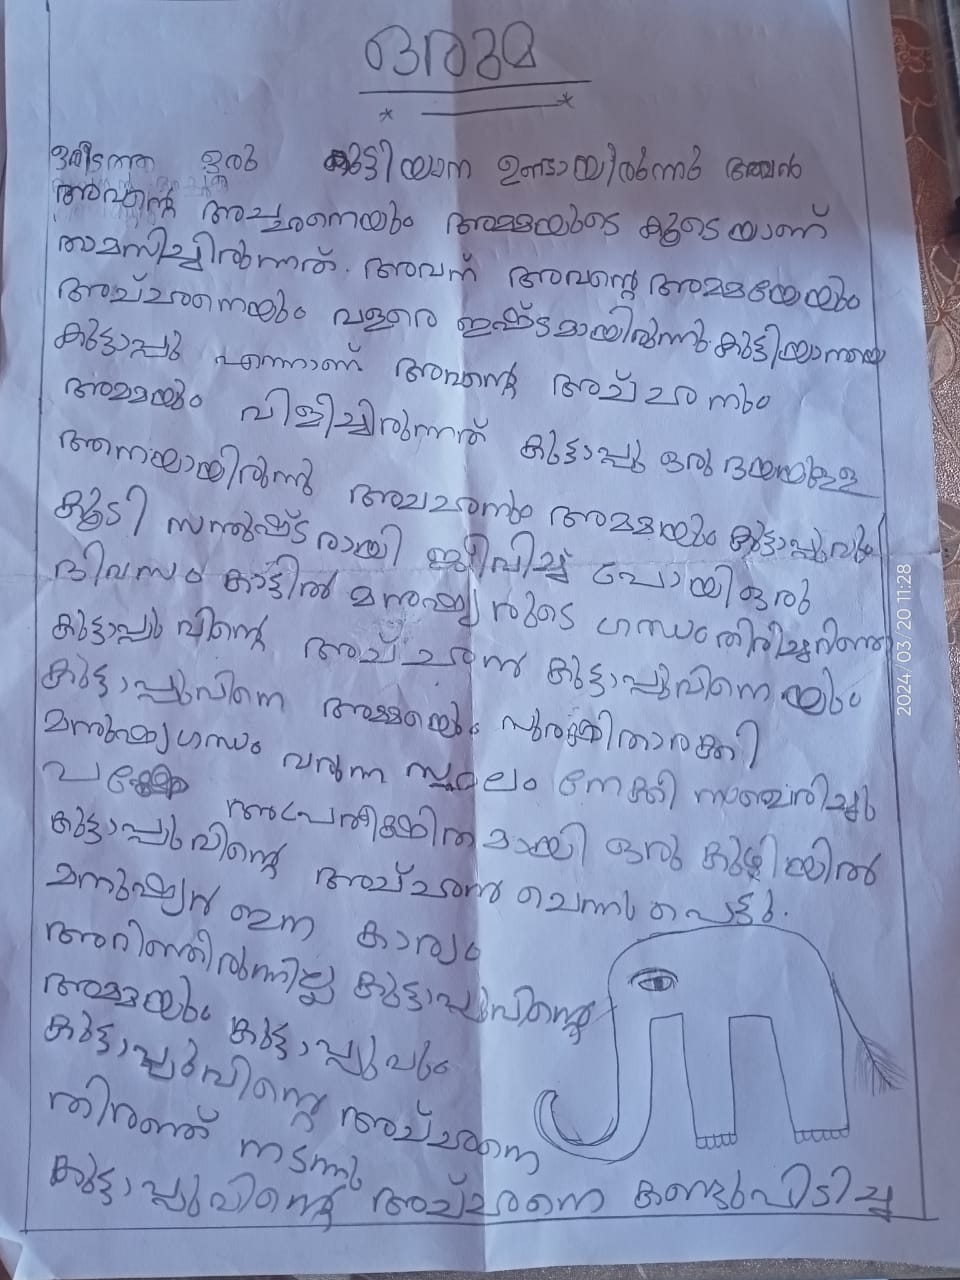 ഒരുമ
ഒരിടത്ത് ഒരു കുട്ടിയാന ഉണ്ടായിരുന്നു അവൻ
അവന്റെ അച്ഛനെയും അമ്മയുടെ കൂടെയാണ്
താമസിച്ചിരുന്നത്. അവന് അവന്റെ അമ്മയേയും
അച്ഛനെയും വളരെ ഇഷ്ടമായിരുന്നു. കുട്ടിയാനയെ
കുട്ടാപ്പു എന്നാണ് അവന്റെ അച്ഛനും
അമ്മയും വിളിച്ചിരുന്നത് കുട്ടാപ്പു ഒരു ദയയുള്ള
ആനയായിരുന്നു അച്ഛനും അമ്മയും കുട്ടാപ്പുവും
കൂടി സന്തുഷ്ടരായി ജീവിച്ചു പോയി ഒരു
ദിവസം കാട്ടിൽ മനുഷ്യരുടെ ഗന്ധം തിരിച്ചറിഞ്ഞ
കുട്ടാപ്പുവിന്റെ അച്ഛൻ കുട്ടാപ്പുവിനെയും
കുട്ടാപ്പുവിനെ അമ്മയെയും സുരക്ഷിതരാക്കി
മനുഷ്യഗന്ധം വരുന്ന സ്ഥലം നേക്കി സഞ്ചരിച്ചു
പക്ഷേ അപ്രതീക്ഷിതമായി ഒരു കുഴിയിൽ
കുട്ടാപ്പുവിന്റെ അച്ഛൻ ചെന്നു പെട്ടു.
മനുഷ്യൻ ഇന കാര്യം
അറിഞ്ഞിരുന്നില്ല കുട്ടാപ്പുവിന്റെ
അമ്മയും കുട്ടാപ്പുവും
കുട്ടാപ്പുവിന്റെ അച്ഛനെ
തിരഞ്ഞ് നടന്നു
കുട്ടാപ്പുവിന്റെ അച്ഛനെ കണ്ടുപിടിച്ചു
2024/03/20 11:28